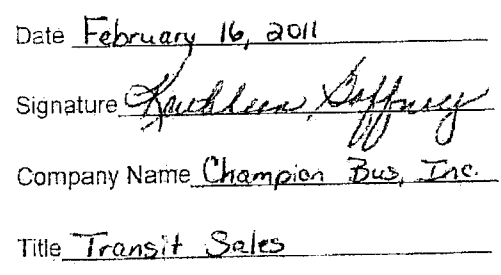 Date February 16, 2011
Signature Kathleen Gaffney
Company Name Champion Bus, Inc.
Title Transit Sales